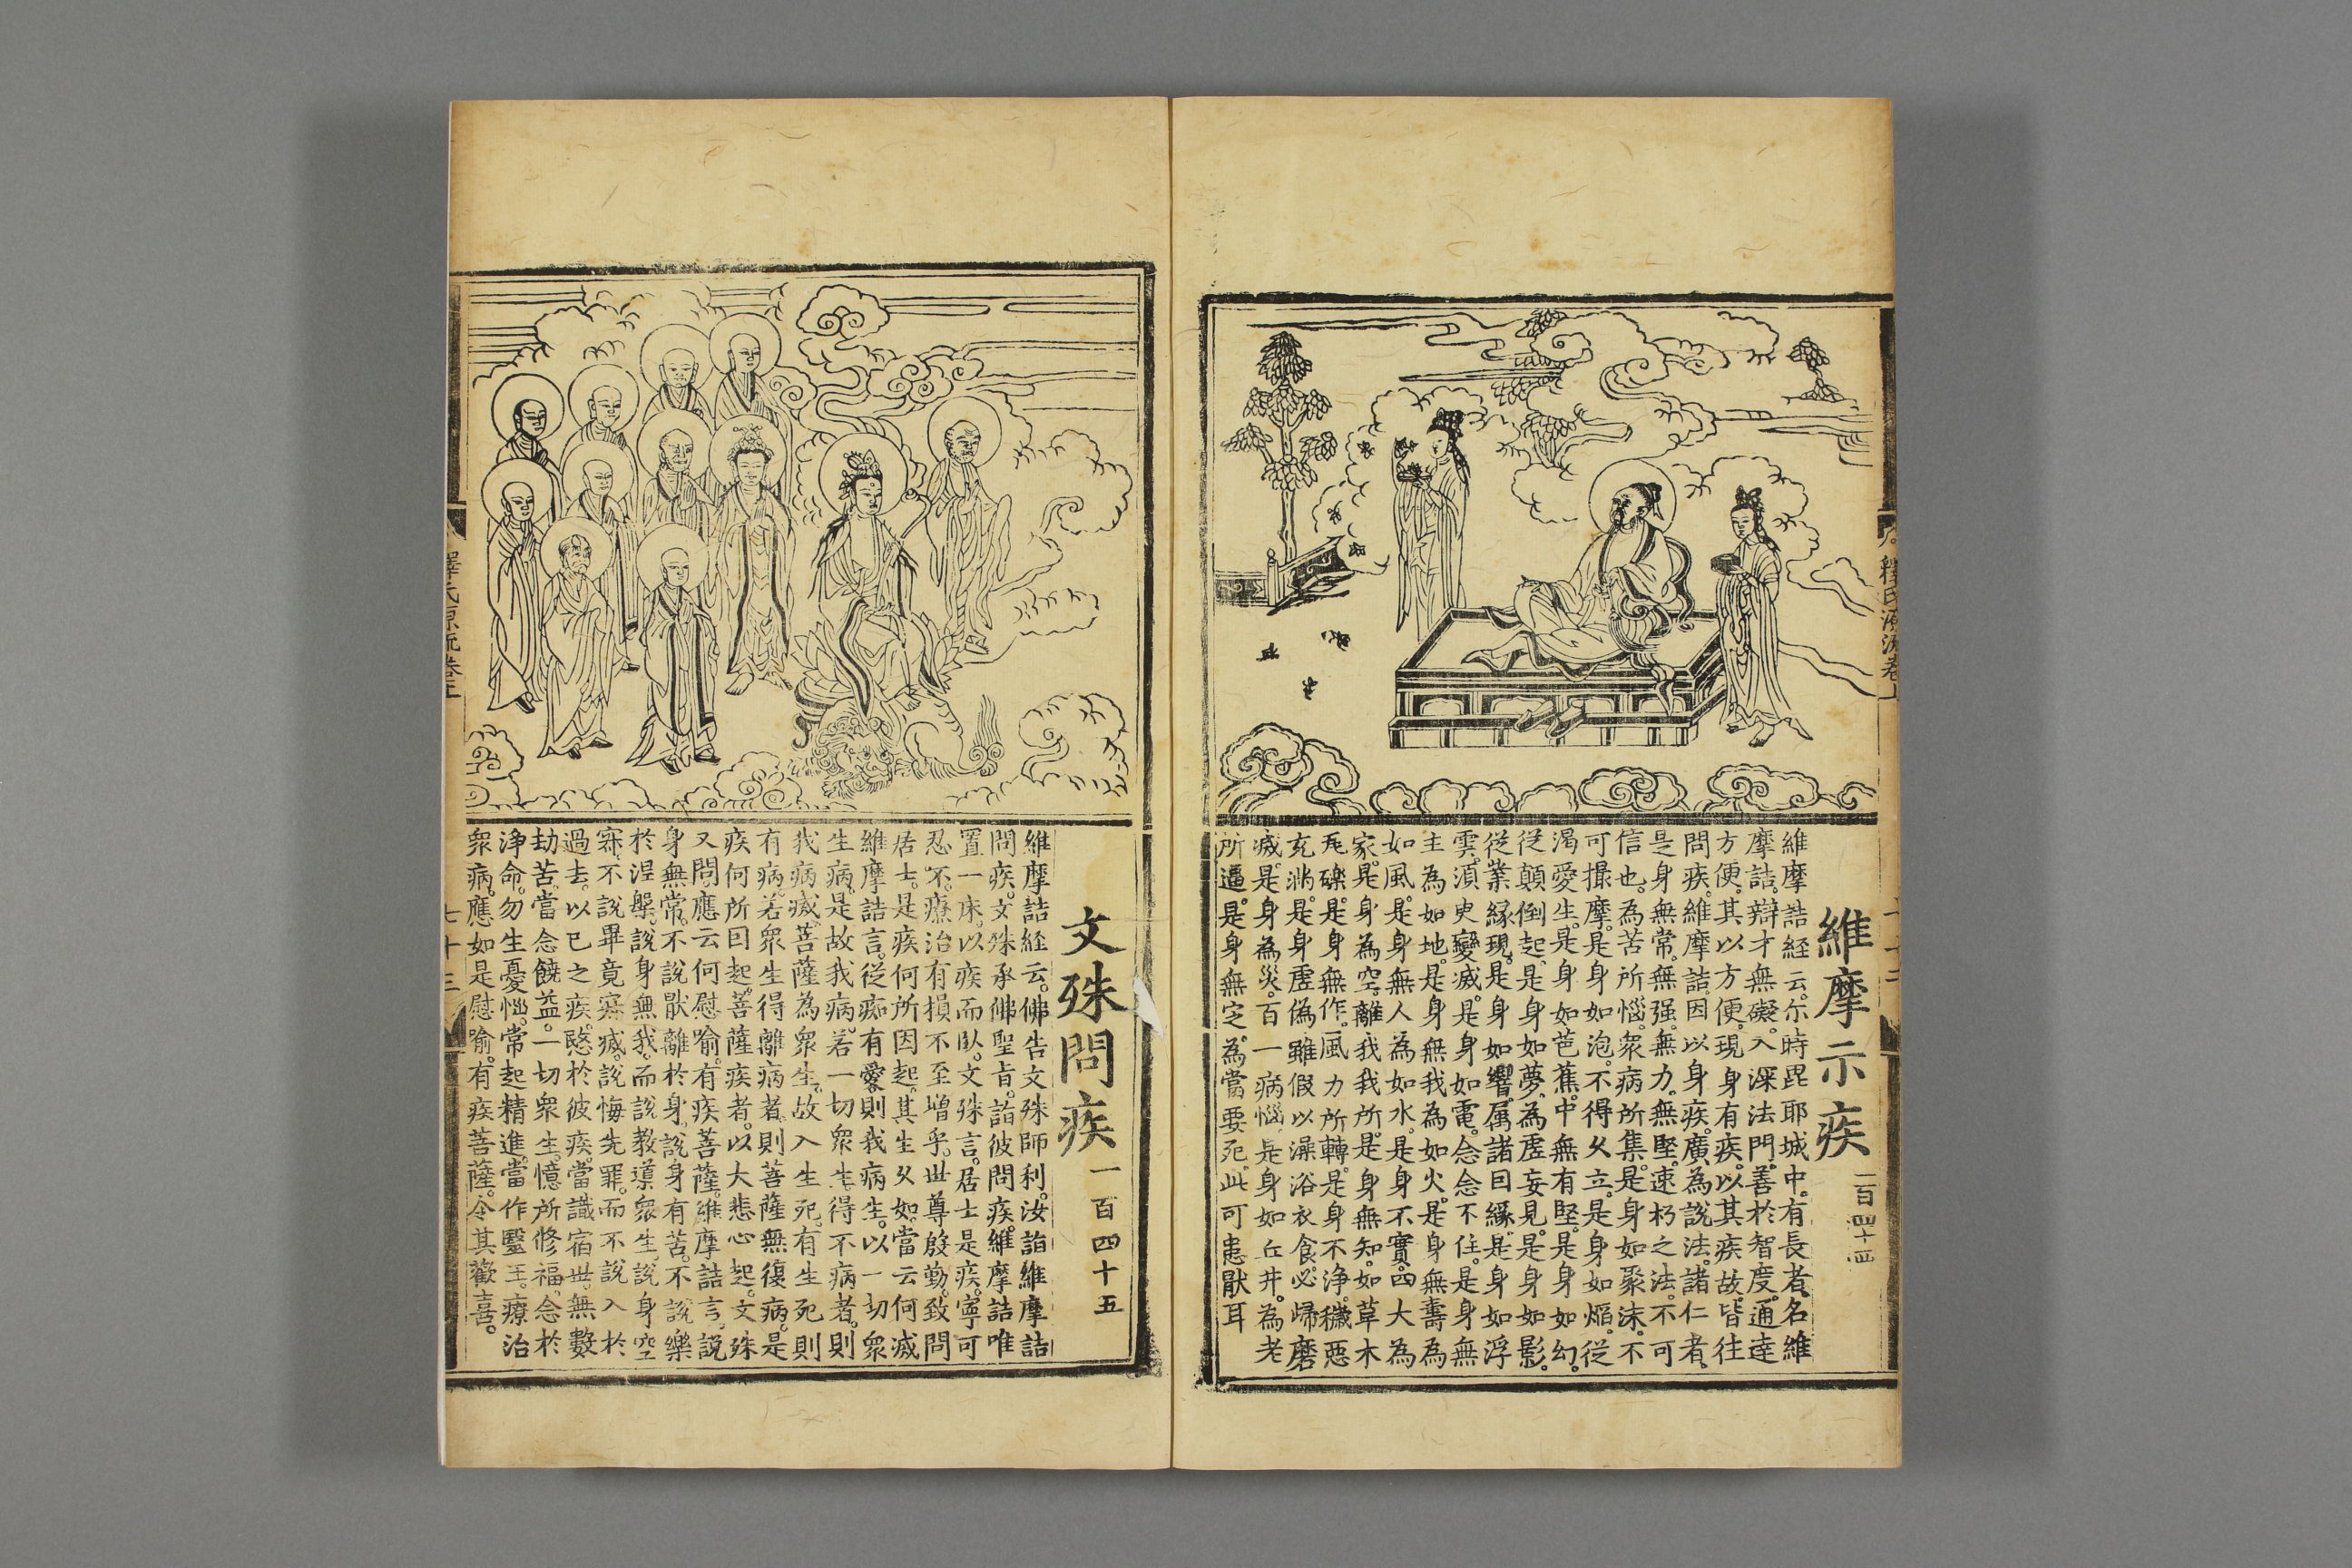 維摩示疾
一百四十四
維摩詰経云。尒時毘耶城中。有長者。名維
摩詰。辯才無礙。入深法門。善於智度。通達
方便。其以方便。現身有疾。以其疾故。皆往
問疾。維摩詰因以身疾。廣為說法。諸仁者。
是身無常。無强。無力。無堅。速朽之法。不可
信也。為苦所惱。衆病所集。是身如聚沫。不
可撮摩。是身如泡。不得乆立。是身如熖。從
渴愛生。是身如芭蕉。中無有堅。是身如幻。
從顛倒起。是身如夢。為虛妄見。是身如影。
從業緣現。是身如響。属諸因緣。是身如浮
雲。湏臾變滅。是身如電。念念不住。是身無
主。為如地。是身無我。為如火。是身無壽。為
如風。是身無人。為如水。是身不實。四大為
家。是身為空。離我我所。是身無知。如草木
瓦礫。是身無作。風力所轉。是身不浄。穢惡
充滿。是身虛偽。雖假以澡浴衣食。必歸磨
滅。是身為災。百一病惱。是身如丘井。為老
所逼。是身無定。為當要死。此可患猒耳
文殊問疾
一百四十五
維摩詰経云。佛告文殊師利。汝詣維摩詰
問疾。文殊承佛聖旨。詣彼問疾。維摩詰唯
置一床。以疾而臥。文殊言。居士是疾。寧可
忍不。療治有損不至增乎。世尊殷勤。致問
居士。是疾何所因起。其生乆如。當云何滅
維摩詰言。從痴有愛。則我病生。以一切衆
生病。是故我病。若一切衆生。得不病者。則
我病滅。菩薩為衆生。故入生死。有生死則
有病。若衆生得離病者。則菩薩無復病。是
疾何所因起。菩薩疾者。以大悲心起。文殊
又問。應云何慰喻。有疾菩薩。維摩詰言。說
身無常。不說猒離於身。說身有苦。不說樂
於涅槃。說身無我。而說教導衆生。說身空
寂。不說畢竟寂滅。說悔先罪。而不說入於
過去。以已之疾。愍於彼疾。當識宿世。無數
劫苦。當念饒益。一切衆生。憶所修福。念於
浄命。勿生憂惱。常起精進。當作醫王。療治
衆病。應如是慰喻。有疾菩薩。令其歡喜。